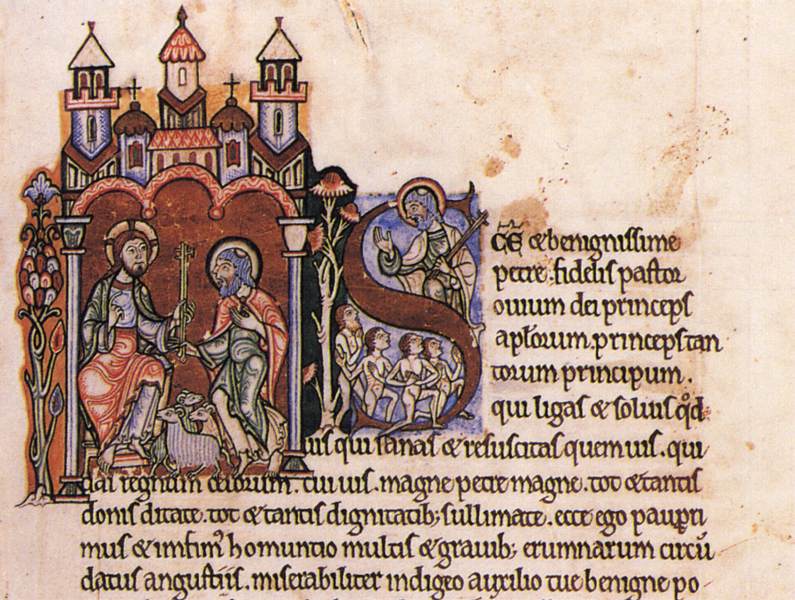 S c̄e & benignissime
petre .fidelis pastor
ouium dei princeps
apl̄orum .princeps tan
torum principum .
qui ligas & soluis qd̊
uis qui sanas & resuscitas quem uis . qui
das regnum celorum . cui uis . magne petre magne . tot & tantis
donis ditate . tot & tantis dignitatib; sullimate . ecce ego paup̱ri
mus & infim' homuncio multis & grauib; erumnarum circū
datus angustiis . miserabiliter indigeo auxilio tue benigne po